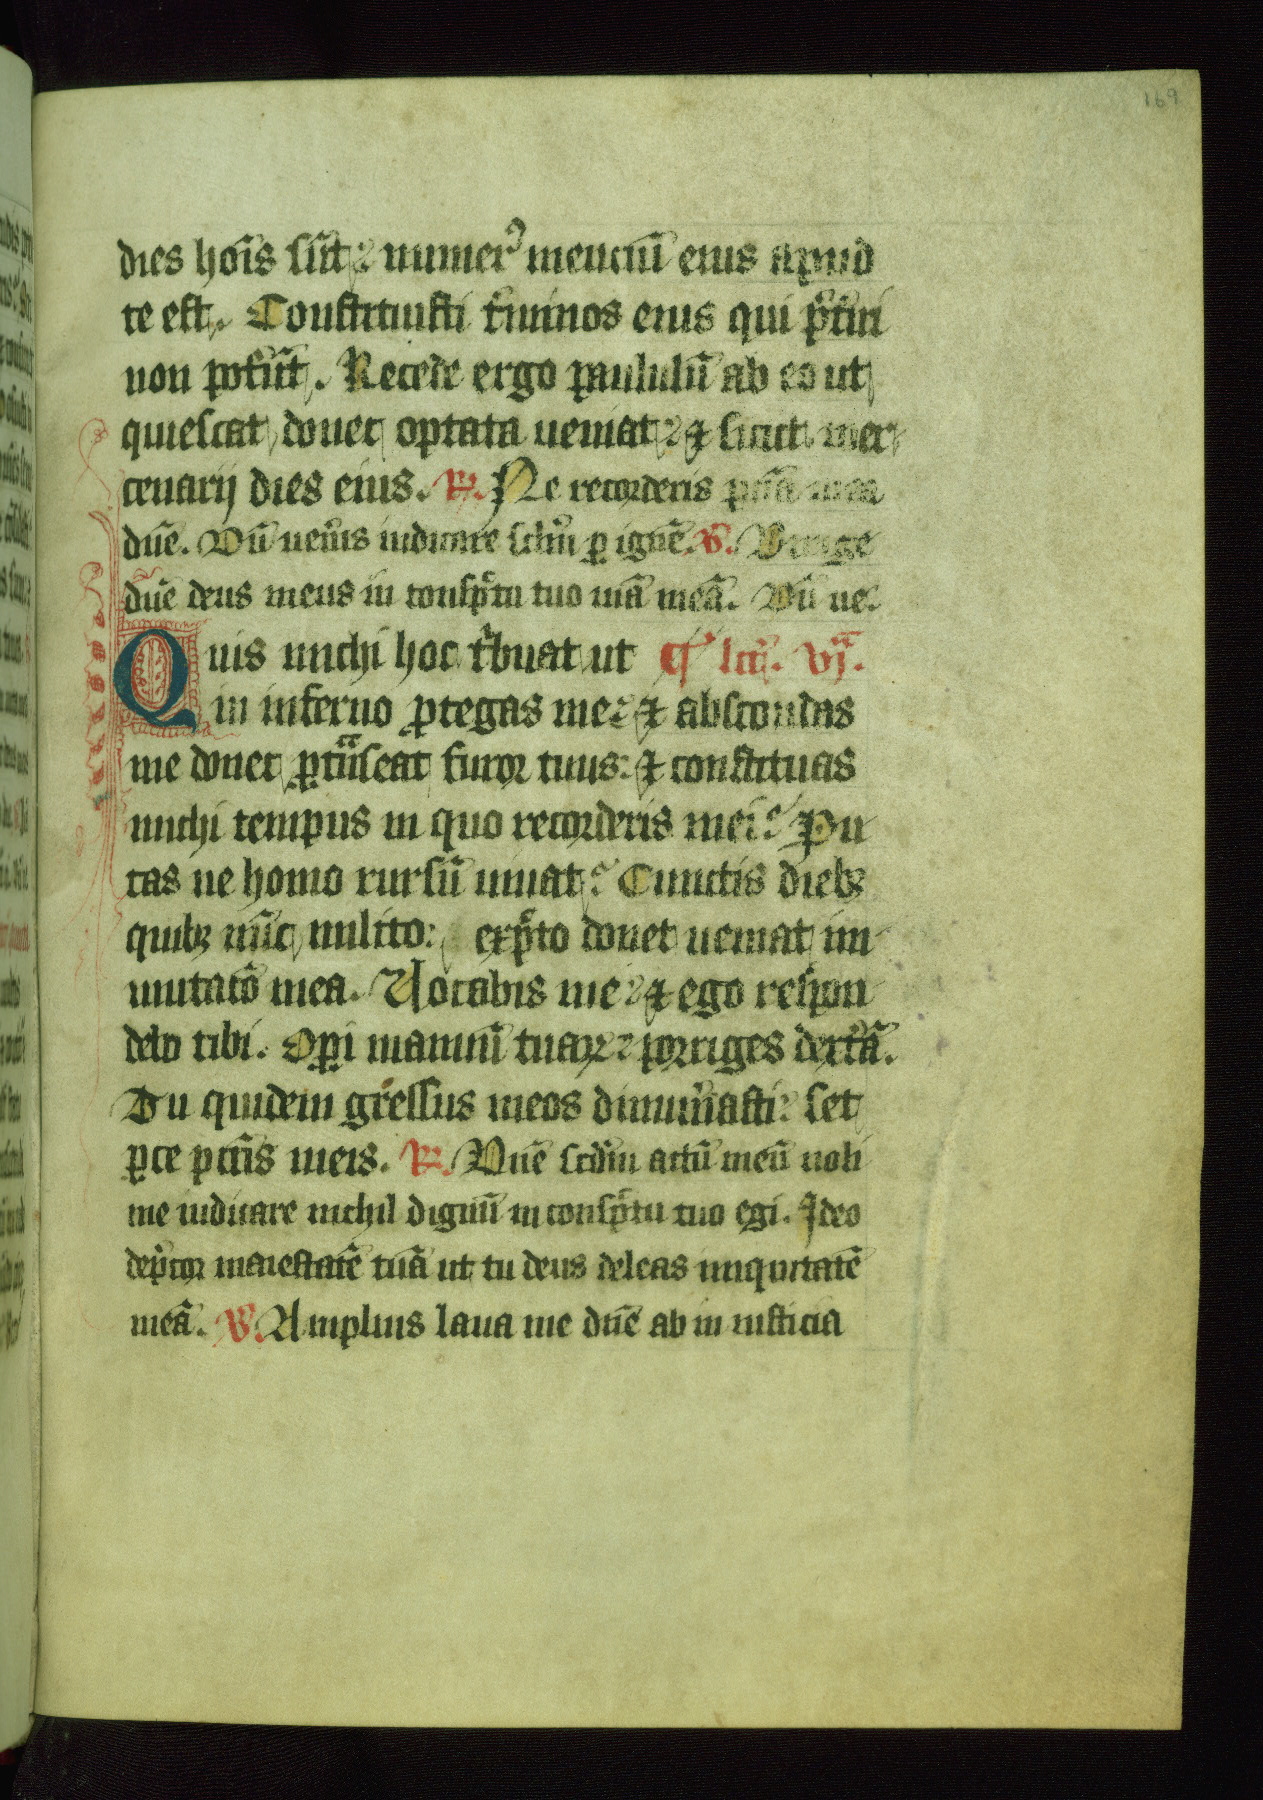 169
dies hoīs sūt; numer⁹ menciū eius apud
te est. Constituisti t̄minos eius qui p̄t̄iri
non pot̄ūt. Recede ergo paululū ab eo ut
quiescat donec optata ueniat; ⁊ sicut mer
cenarij dies eius. R̸. Ne recorderis pc̄cā mea
dn̄e. Dū uen̄is iudicare sc̄lm̄ p̱ ignē. V̸. Dirige
dn̄e deus meus in consp̄ctu tuo uiā meā. Dū ue.
Quis michi hoc t̄buat ut ¶ lc̄c̄. vj̄.
in inferno ꝓtegas me; ⁊ abscondas
me donec p̱t̄nseat furor tuus: ⁊ constituas
michi tempus in quo recorderis mei; Pu
tas ne homo rursū uiuat; Cunctis dieb⁊
quib⁊ nūc milito: exp̄to donec ueniat im
mutatō mea. Uocabis me; ⁊ ego respon
debo tibi. Op̱i manuū tuaꝝ; porriges dext̄ā.
Tu quidem gressus meos dinum̄asti; set
p̱ce pcc̄is meis. R̸. Dn̄e scd̄m actū meū noli
me iudicare nichil dignū in consp̄ctu tuo egi. Ideo
dep̄cor maiestatē tuā ut tu deus deleas iniquitatē
meā. V̸. Amplius laua me dn̄e ab in iusticia